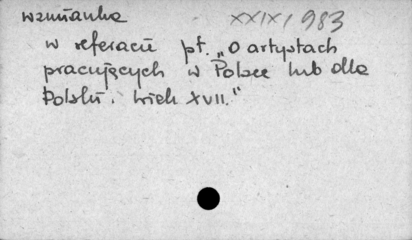 wzmianka XXIX/983
w referacie pt. „O artystach
pracujących w Polsce lub dla
Polski. Wiek XVII."